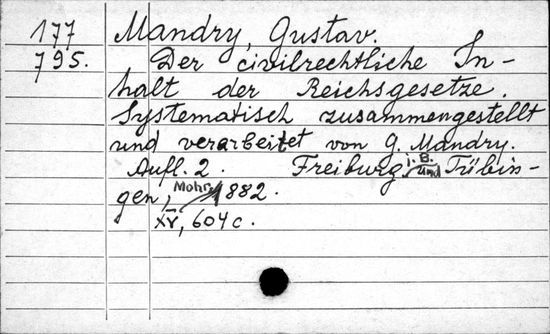 177 Mandry, Gustav.
795. Der civilrechtliche In-
halt der Reichsgesetze.
Systematisch zusammengestellt
und verarbeitet von G. Mandry.
Aufl. 2. Freiburg i. B. und Tübin-
gen, Mohr, 1882.
XV, 604 c.